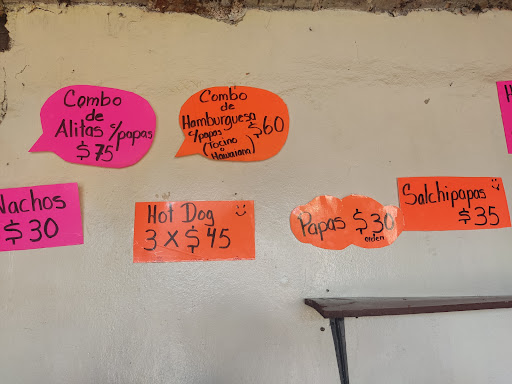 Combo
de
Alitas c/papas
$75
Combo
de
Hamburguesa
c/papas $60
(Tocino
o
Hawaiana)
H
Nachos
$30
Hot Dog
3 X $45
Papas $30
orden
Salchipapas
$35